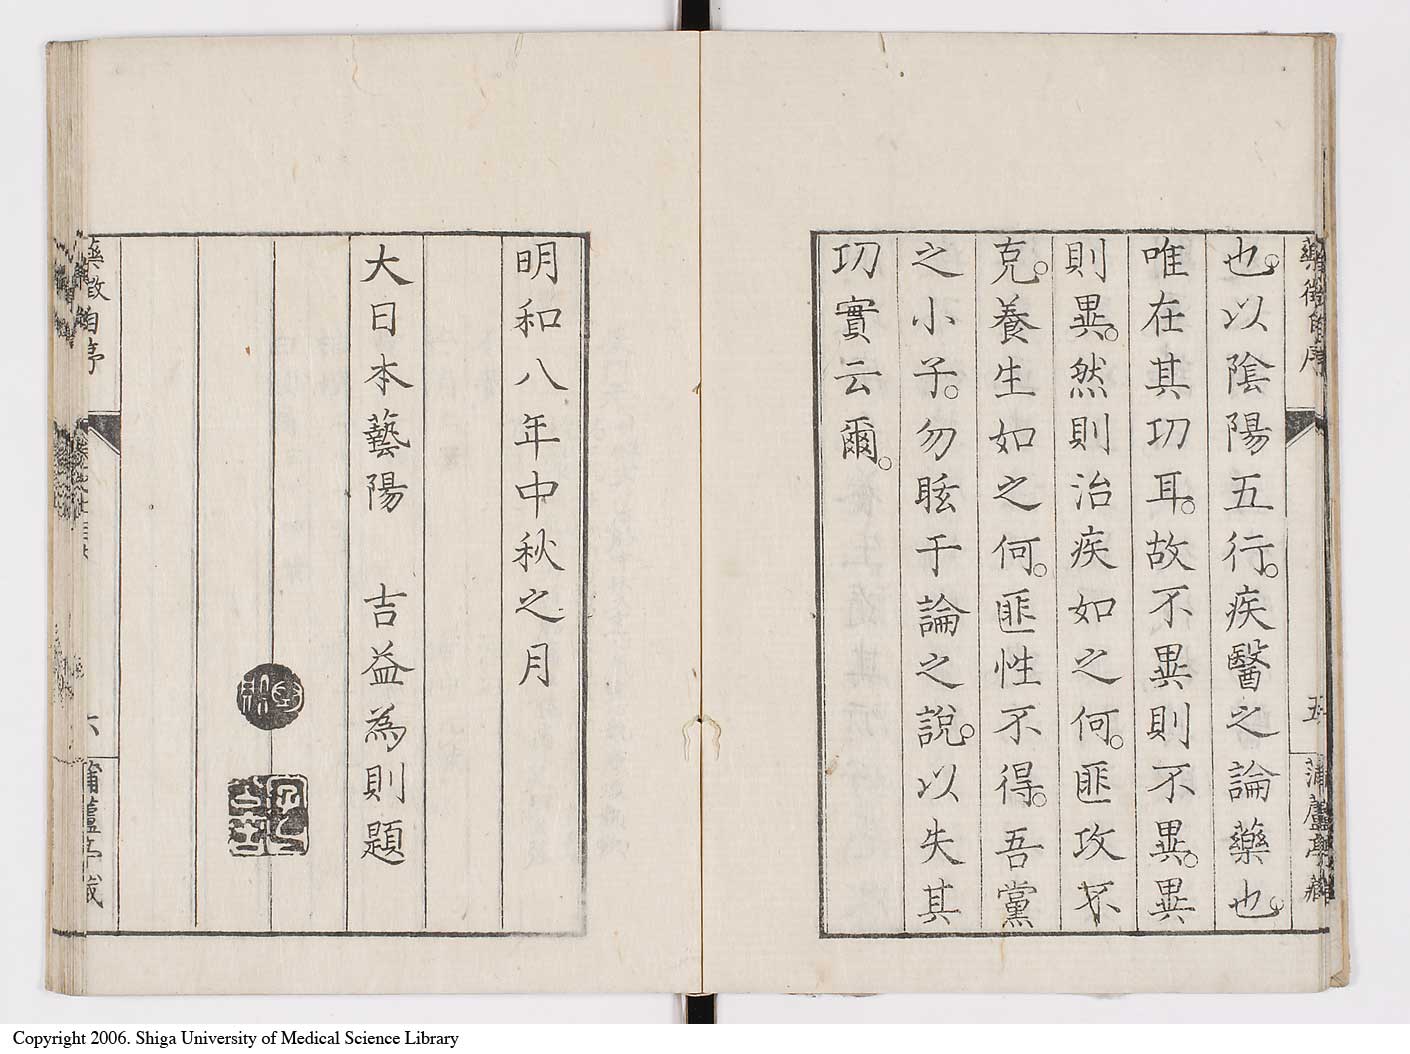 藥徵自序
五
蒲蘆亭藏
也。以陰陽五行。疾醫之論藥也。
唯在其功耳。故不異則不異。異
則異。然則治疾如之何。匪攻不
克。養生如之何。匪性不得。吾黨
之小子。勿眩于論之說。以失其
功實云爾。
明和八年中秋之月
大日本藝陽　吉益為則題
藥徵自序
六
蒲蘆亭藏
Copyright 2006. Shiga University of Medical Science Library